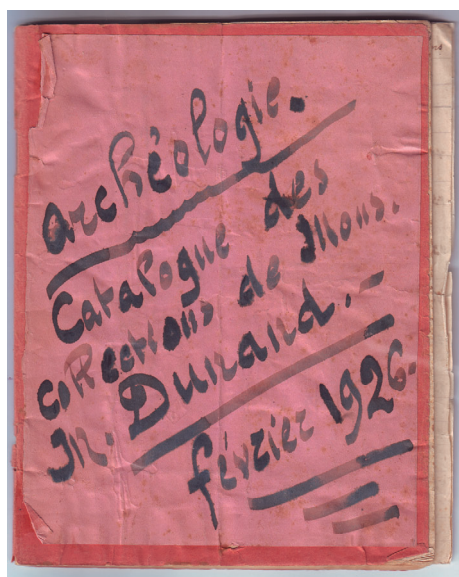 Archéologie.
Catalogue des
collections de Mons.
M. Dunand.-
février 1926.